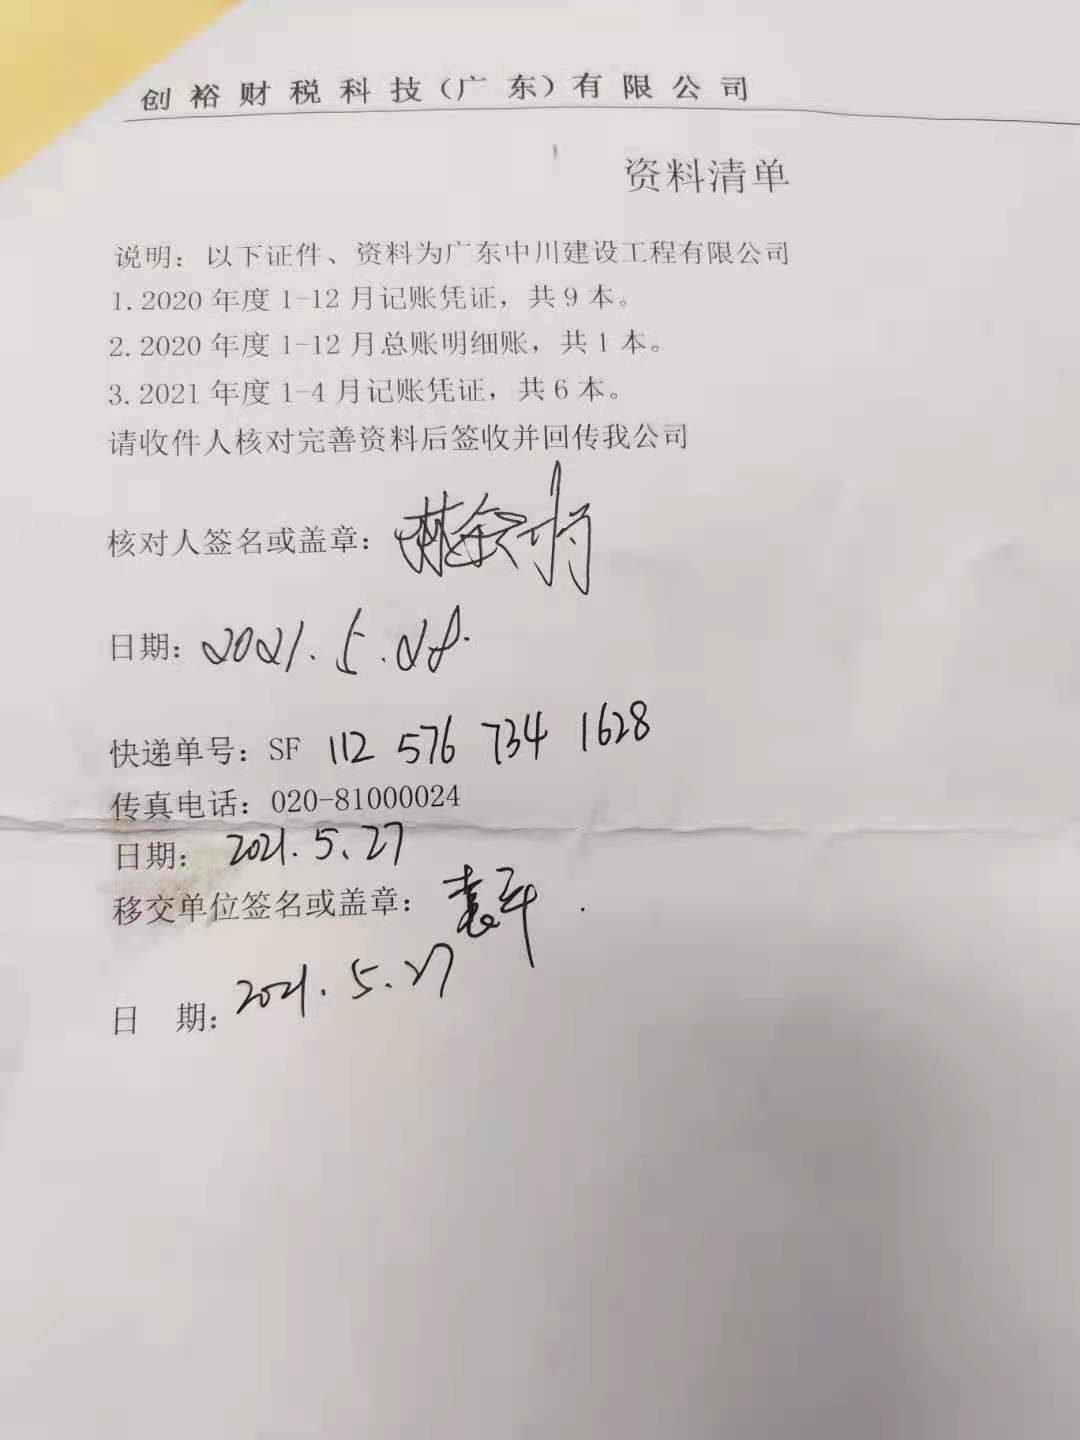 创裕财税科技（广东）有限公司
资料清单
说明：以下证件、资料为广东中川建设工程有限公司
1.2020年度1-12月记账凭证，共9本。
2.2020年度1-12月总账明细账，共1本。
3.2021年度1-4月记账凭证，共6本。
请收件人核对完善资料后签收并回传我公司
核对人签名或盖章：
日期：2021.5.28.
快递单号：SF 112 576 734 1628
传真电话：020-81000024
日期：2021.5.27
移交单位签名或盖章：袁平
日 期：2021.5.27